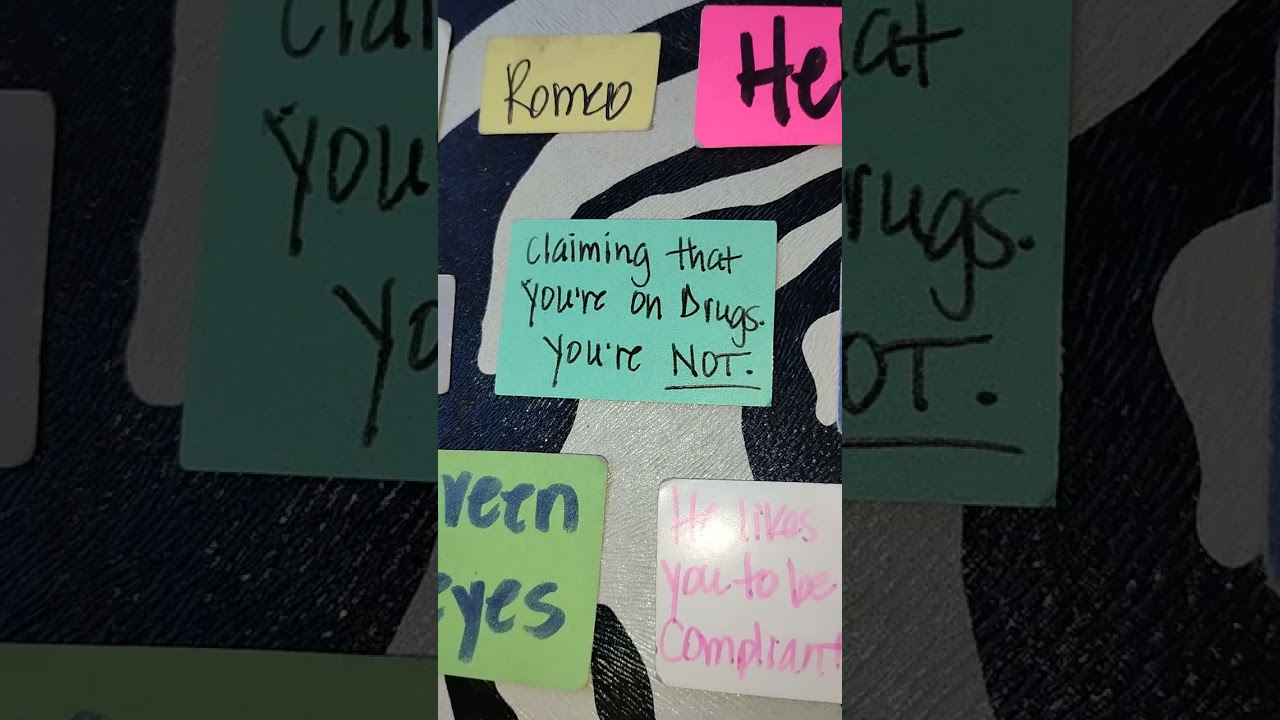 Romeo
He
Claiming that
you're on Drugs.
You're NOT.
eyes
He likes
you to be
Compliant